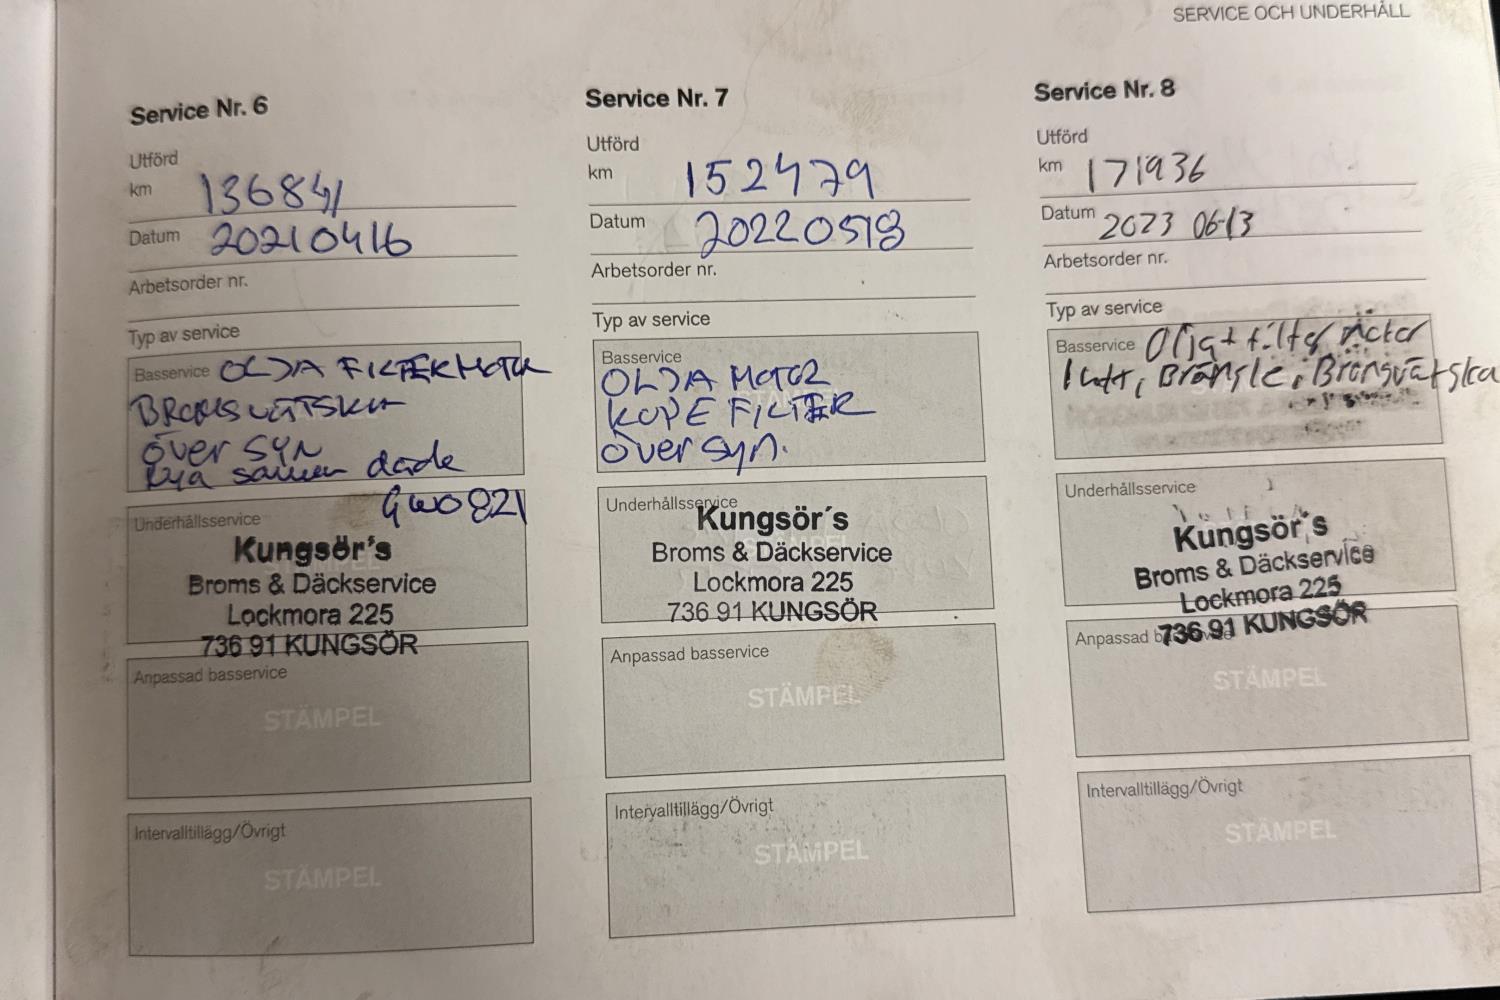 SERVICE OCH UNDERHÅLL
Service Nr. 6
Utförd
km 136841
Datum 20210416
Arbetsorder nr.
Typ av service
Basservice OLJA FILTER MOTOR
BROMSVÄTSKA
över SYN
nya sommardäck
GWO821
Underhållsservice
Kungsör's
Broms & Däckservice
Lockmora 225
736 91 KUNGSÖR
Anpassad basservice
STÄMPEL
Intervalltillägg/Övrigt
STÄMPEL
Service Nr. 7
Utförd
km 152479
Datum 20220518
Arbetsorder nr.
Typ av service
Basservice
OLJA MOTOR
KUPE FILTER
över syn.
Underhållsservice
Kungsör's
Broms & Däckservice
Lockmora 225
736 91 KUNGSÖR
Anpassad basservice
STÄMPEL
Intervalltillägg/Övrigt
STÄMPEL
Service Nr. 8
Utförd
km 171936
Datum 2023 06-13
Arbetsorder nr.
Typ av service
Basservice Olja+filter motor
luft, Bränsle, Bromsvätska
Underhållsservice
Kungsör's
Broms & Däckservice
Lockmora 225
736 91 KUNGSÖR
Anpassad basservice
STÄMPEL
Intervalltillägg/Övrigt
STÄMPEL